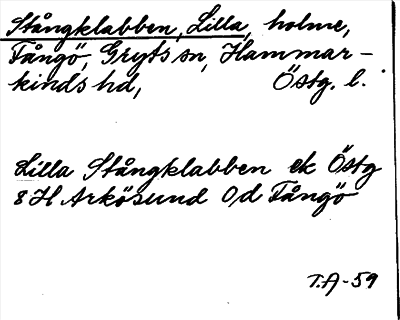 Stångklabben, Lilla, holme,
Fångö, Gryts sn, Hammar-
kinds hd, Östg. l.
Lilla Stångklabben ek Östg
8H Arkösund 0d Fångö
T.A-59